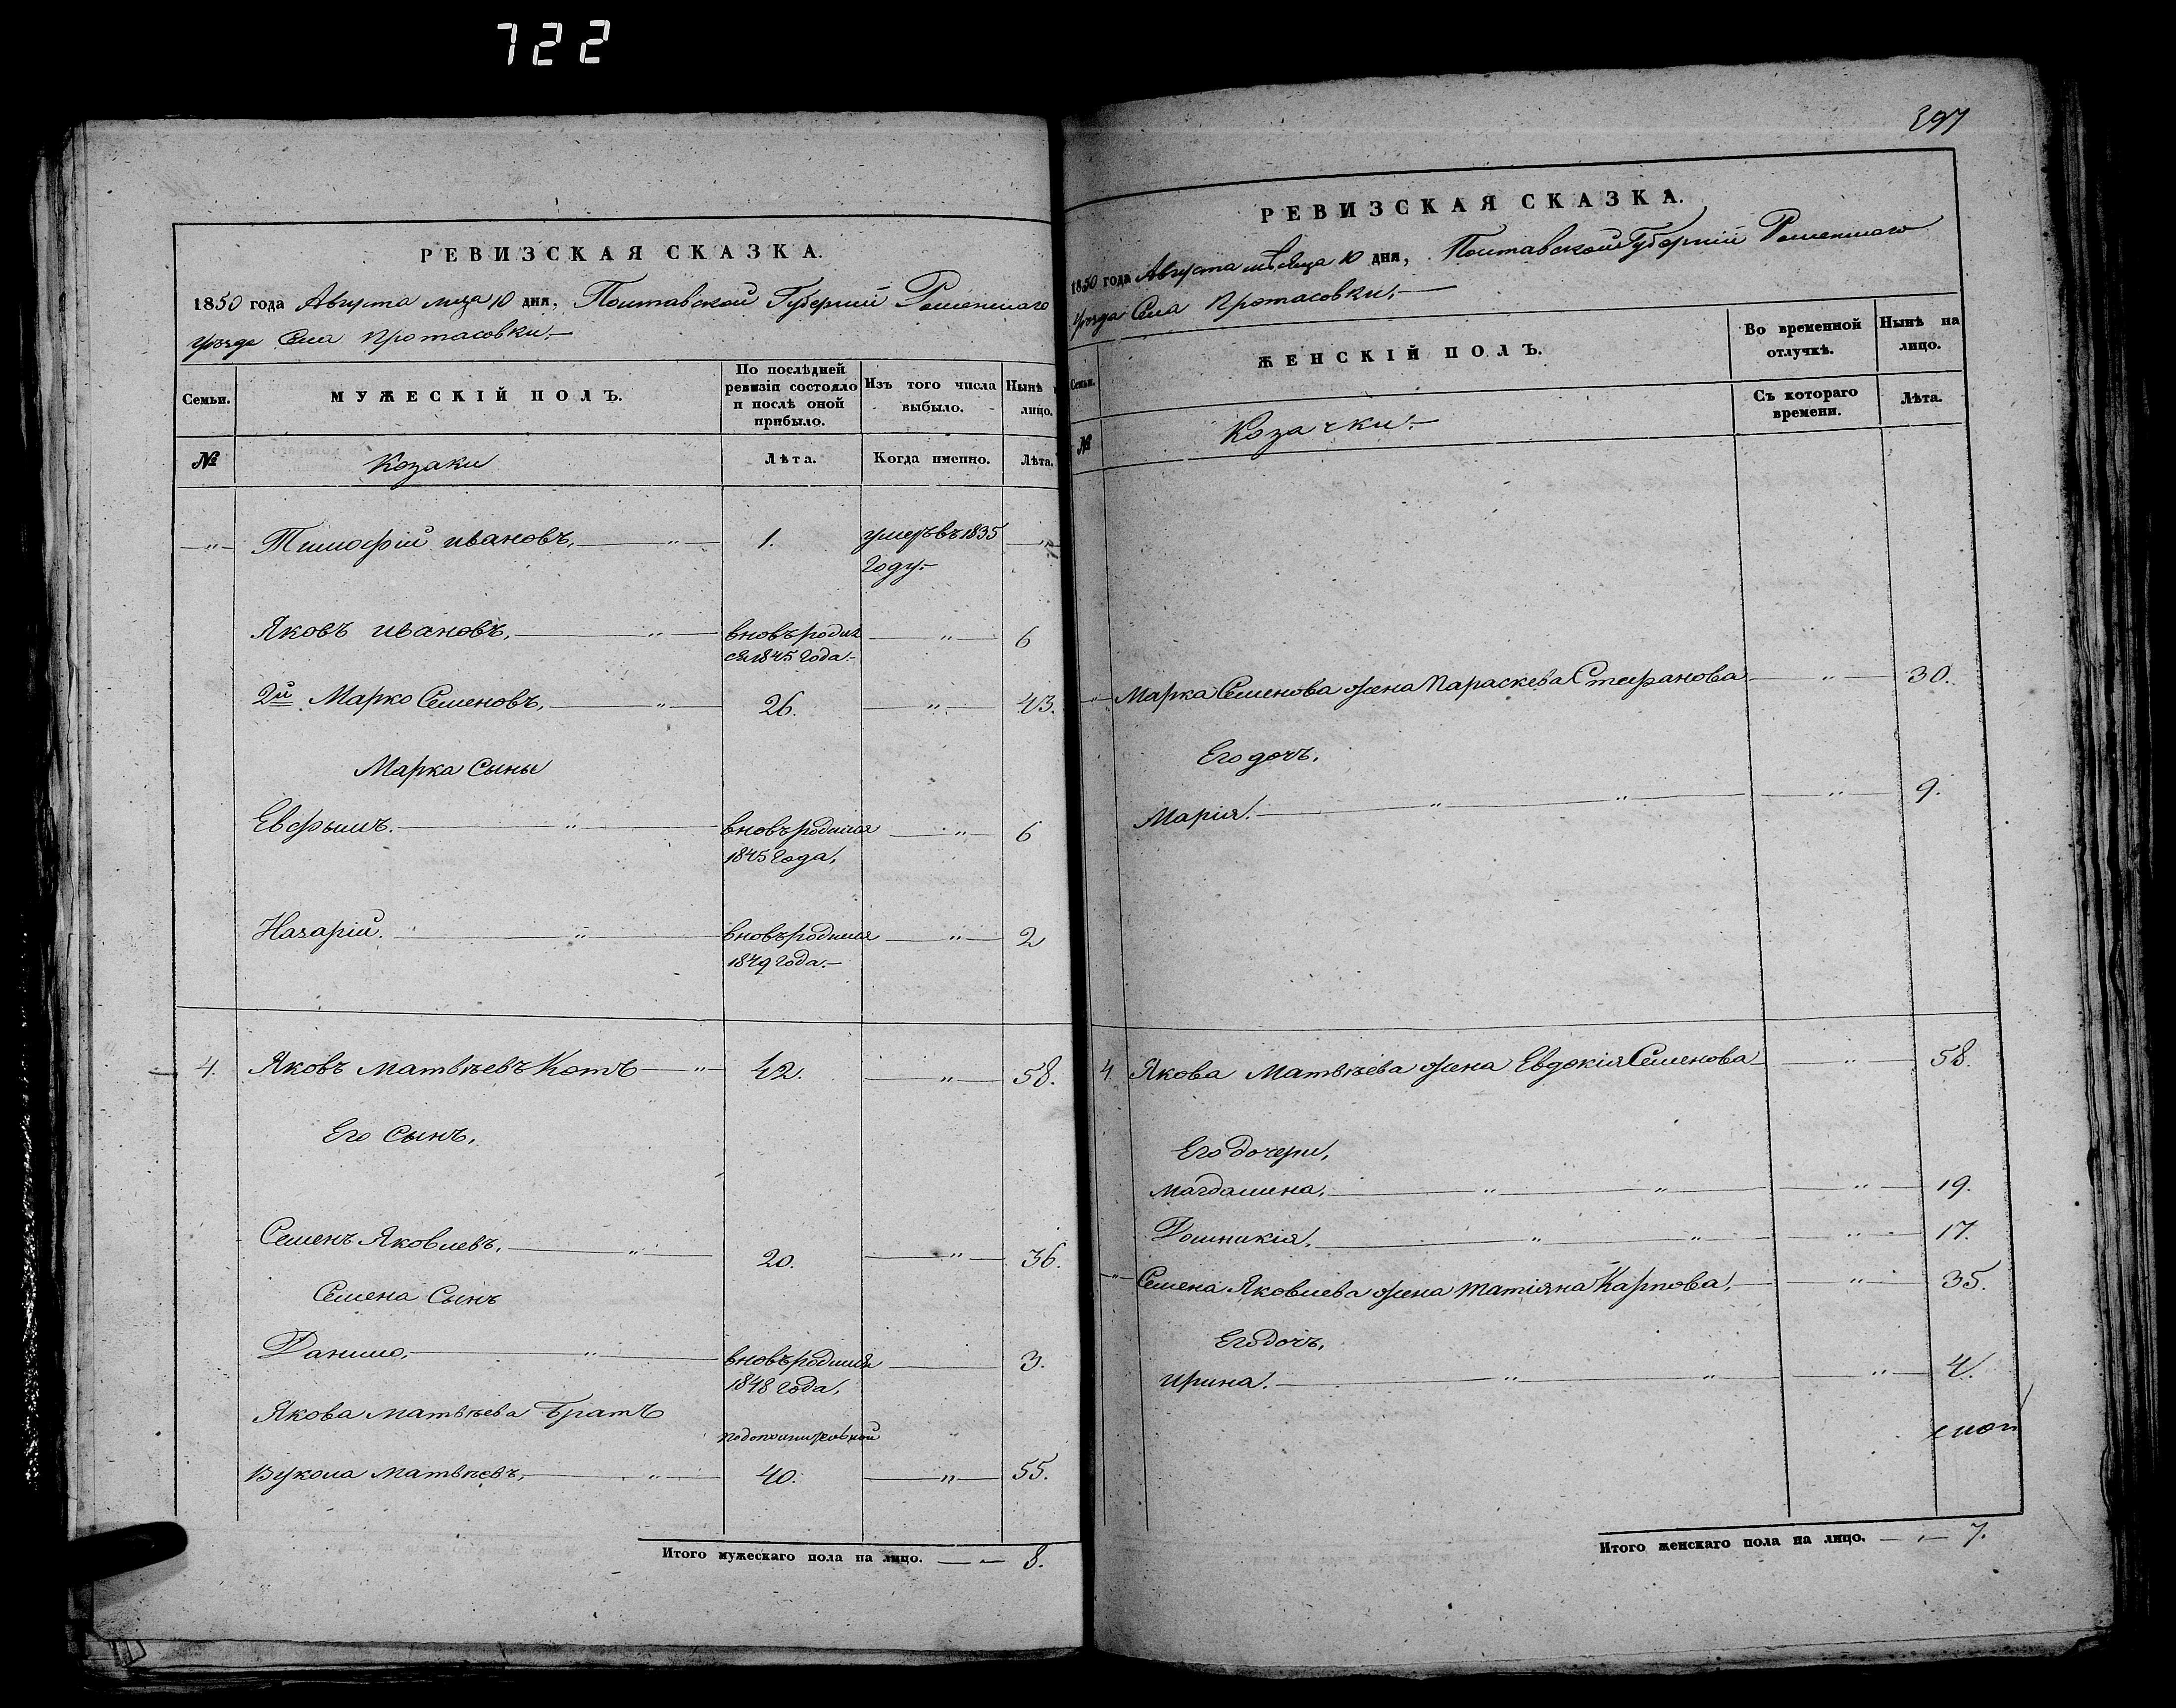 722
РЕВИЗСКАЯ СКАЗКА.
1850 года Августа мца 10 дня, Полтавской Губерніи Роменскаго
уѣзда Села Протасовки.
Семьи.
МУЖЕСКІЙ ПОЛЪ.
По послѣдней
ревизіи состояло
и послѣ оной
прибыло.
Изъ того числа
выбыло.
Нынѣ
лицо.
№
Козаки
Лѣта.
Когда именно.
Лѣта.
Тимофій Ивановъ, 1. умеръ въ 1835
Году.
Яковъ Ивановъ, вновь родил 6
ся 1845 Года.
2й Марко Семеновъ, 26. 43.
Марка Сыны
Евфымъ. вновь родился 6
1845 Года,
Назарій. вновь родился 2
1849 Года.
4. Яковъ Матвѣевъ Котъ 42. 58.
Его Сынъ,
Семенъ Яковлевъ, 20. 36.
Семена Сынъ
Данило, вновь родился 3.
1848 Года,
Якова Матвѣева Братъ
Вукола Матвѣевъ, 40. 55.
Итого мужескаго пола на лицо. 8.
397
РЕВИЗСКАЯ СКАЗКА.
1850 года Августа мѣсяца 10 дня, Полтавской Губерніи Роменскаго
уѣзда Села Протасовки,
Семьи.
ЖЕНСКІЙ ПОЛЪ.
Во временной
отлучкѣ.
Нынѣ на
лицо.
Съ котораго
времени.
Лѣта.
№
Козачки.
Марка Семенова жена Параскева Стефанова 30.
Его дочь,
Марія. 9.
4. Якова Матвѣева жена Евдокія Семенова 58.
Его дочери,
Магдалина, 19.
Домникія, 17.
Семена Яковлева жена Татіяна Карпова, 35.
Его дочь,
Ирина. 4.
Итого женскаго пола на лицо. 7.